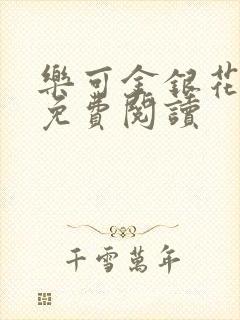 樂可金銀花
免費閱讀
千雪萬年